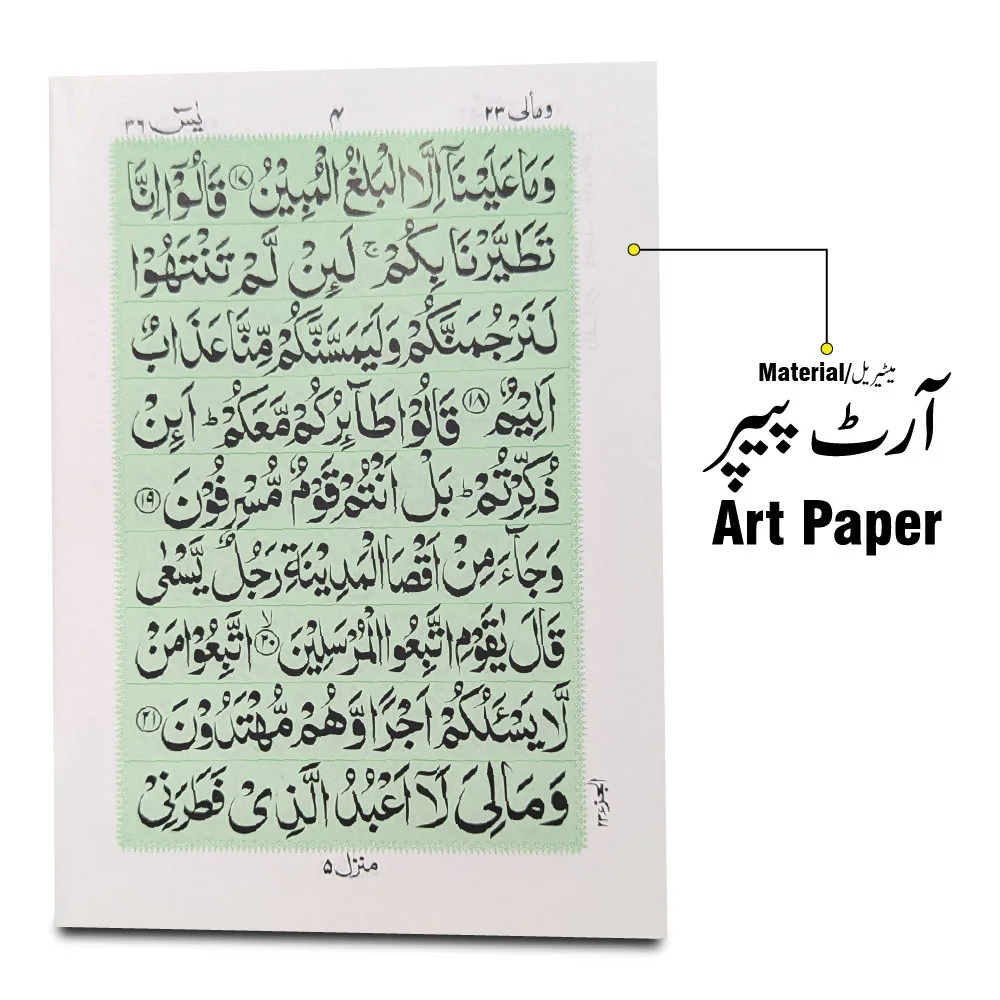 یٰسٓ ۳۶
۴
ومالی ۲۳
وَمَا عَلَيْنَآ اِلَّا الْبَلٰغُ الْمُبِيْنُ ۝۱۷ قَالُوْٓا اِنَّا
تَطَيَّرْنَا بِكُمْ ۚ لَئِنْ لَّمْ تَنْتَهُوْا
لَنَرْجُمَنَّكُمْ وَلَيَمَسَّنَّكُمْ مِّنَّا عَذَابٌ
اَلِيْمٌ ۝۱۸ قَالُوْا طَآئِرُكُمْ مَّعَكُمْ ؕ اَئِنْ
ذُكِّرْتُمْ ؕ بَلْ اَنْتُمْ قَوْمٌ مُّسْرِفُوْنَ ۝۱۹
وَجَآءَ مِنْ اَقْصَا الْمَدِيْنَةِ رَجُلٌ يَّسْعٰى
قَالَ يٰقَوْمِ اتَّبِعُوا الْمُرْسَلِيْنَ ۝۲۰ۙ اتَّبِعُوْا مَنْ
لَّا يَسْـَٔلُكُمْ اَجْرًا وَّهُمْ مُّهْتَدُوْنَ ۝۲۱
وَمَا لِیَ لَآ اَعْبُدُ الَّذِیْ فَطَرَنِیْ
الجزء ۲۳
منزل ۵
Material/میٹیریل
آرٹ پیپر
Art Paper